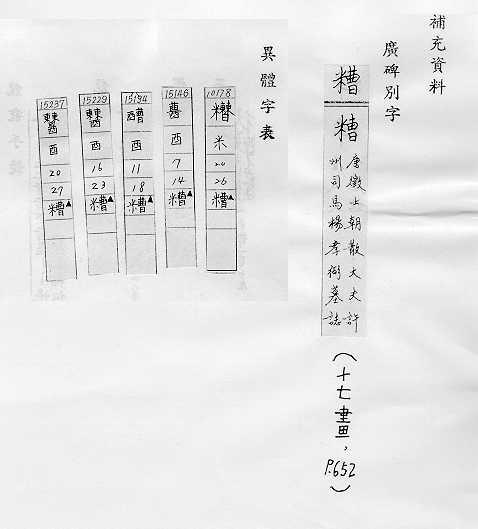 補充資料
廣碑別字
糟
糟
唐徵士朝散大夫許
州司馬楊孝弼墓誌
(十七畫,
P.652)
異體字表
10178
米
20
26
糟▲
15146
酉
7
14
糟▲
15194
酉
11
18
糟▲
15229
酉
16
23
糟▲
15237
酉
20
27
糟▲